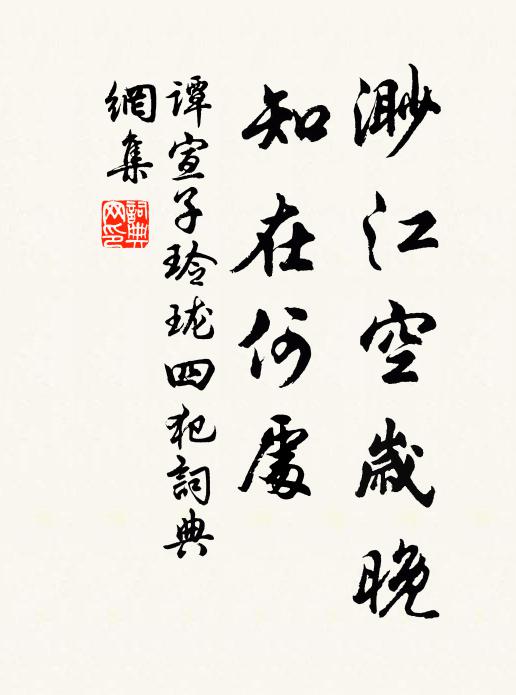 渺江空歲晚
知在何處
谭宣子玲珑四犯詞典
網集
詞典
网印